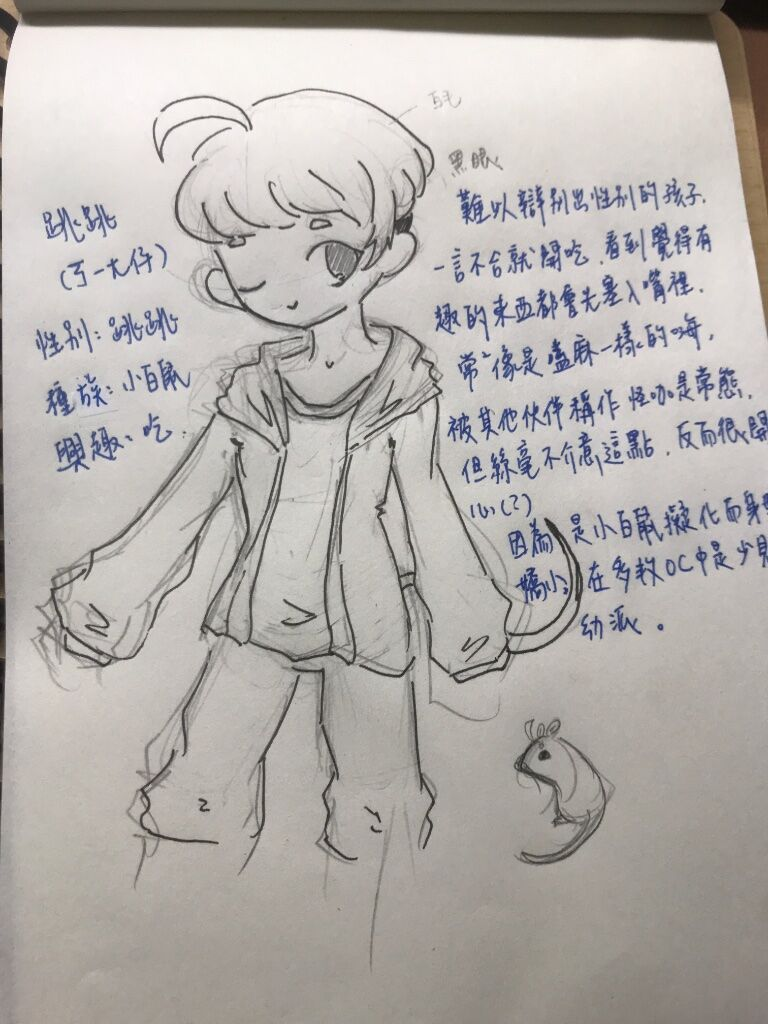 白毛
黑眼
跳跳
(ㄎㄧㄤ仔)
性別:跳跳
種族:小白鼠
興趣:吃
難以辯別出性別的孩子.
一言不合就開吃,看到覺得有
趣的東西都會先塞入嘴裡.
常常像是嗑麻一樣的嗨,
被其他伙伴稱作怪咖是常態,
但絲毫不介意這點,反而很開
心(?)
因為是小白鼠擬化而身型
嬌小,在多數OC中是少見
幼派。